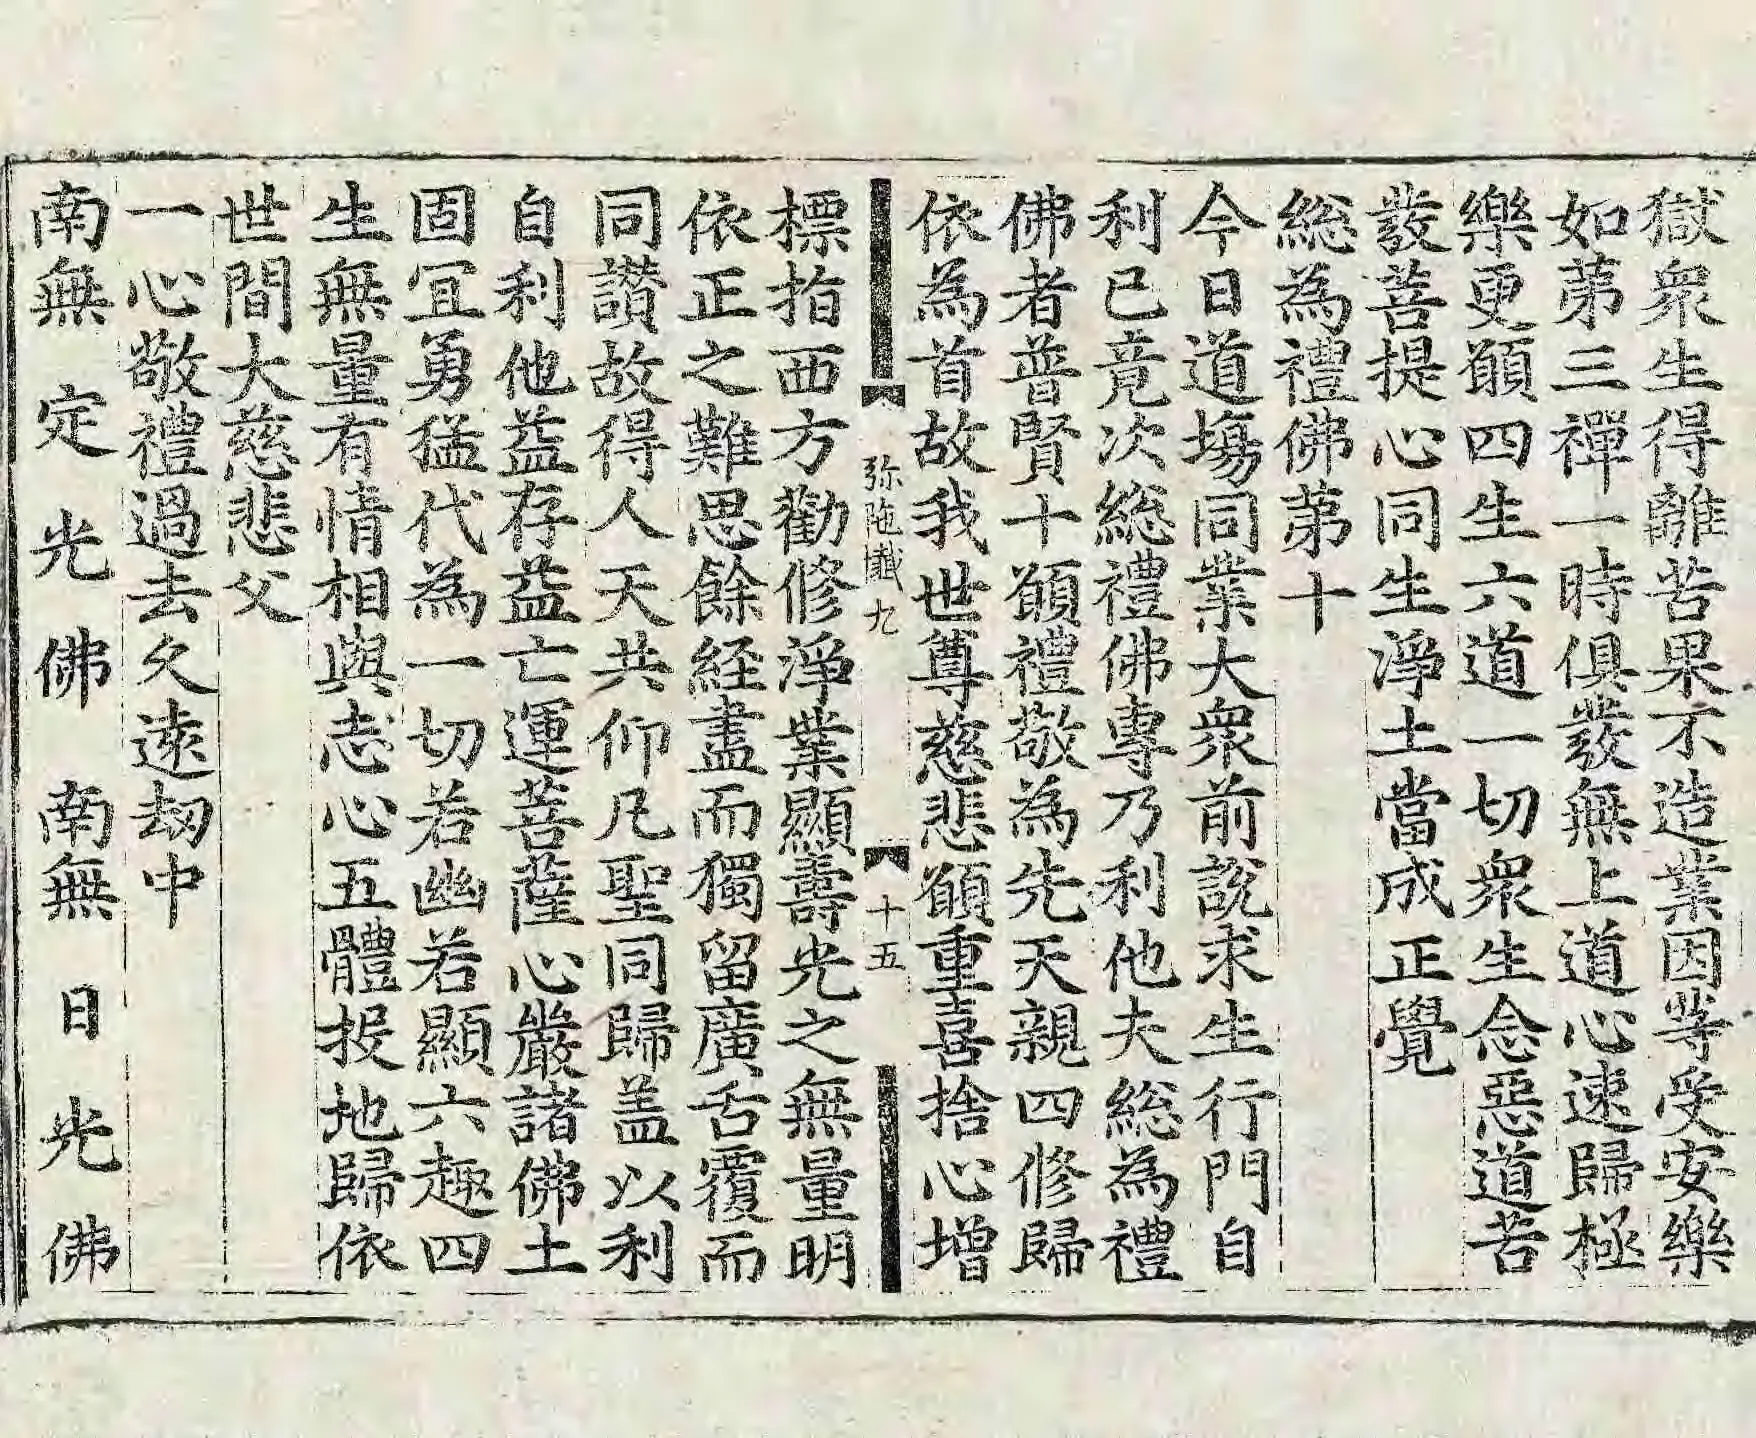 獄衆生得離苦果不造業因等受安樂
如苐三禪一時俱發無上道心速歸極
樂更願四生六道一切衆生念惡道苦
發菩提心同生淨土當成正覺
総為禮佛苐十
今日道塲同業大衆前說求生行門自
利已竟次総禮佛專乃利他夫総為禮
佛者普賢十願禮敬為先天親四修歸
依為首故我世尊慈悲願重喜捨心增
弥陁懴九 十五
標指西方勸修淨業顯壽光之無量明
依正之難思餘経盡而獨留廣舌覆而
同讃故得人天共仰凡聖同歸盖以利
自利他益存益亡運菩薩心嚴諸佛土
固冝勇猛代為一切若幽若顯六趣四
生無量有情相與志心五體投地歸依
世間大慈悲父
一心敬禮過去久遠劫中
南無定光佛 南無日光佛